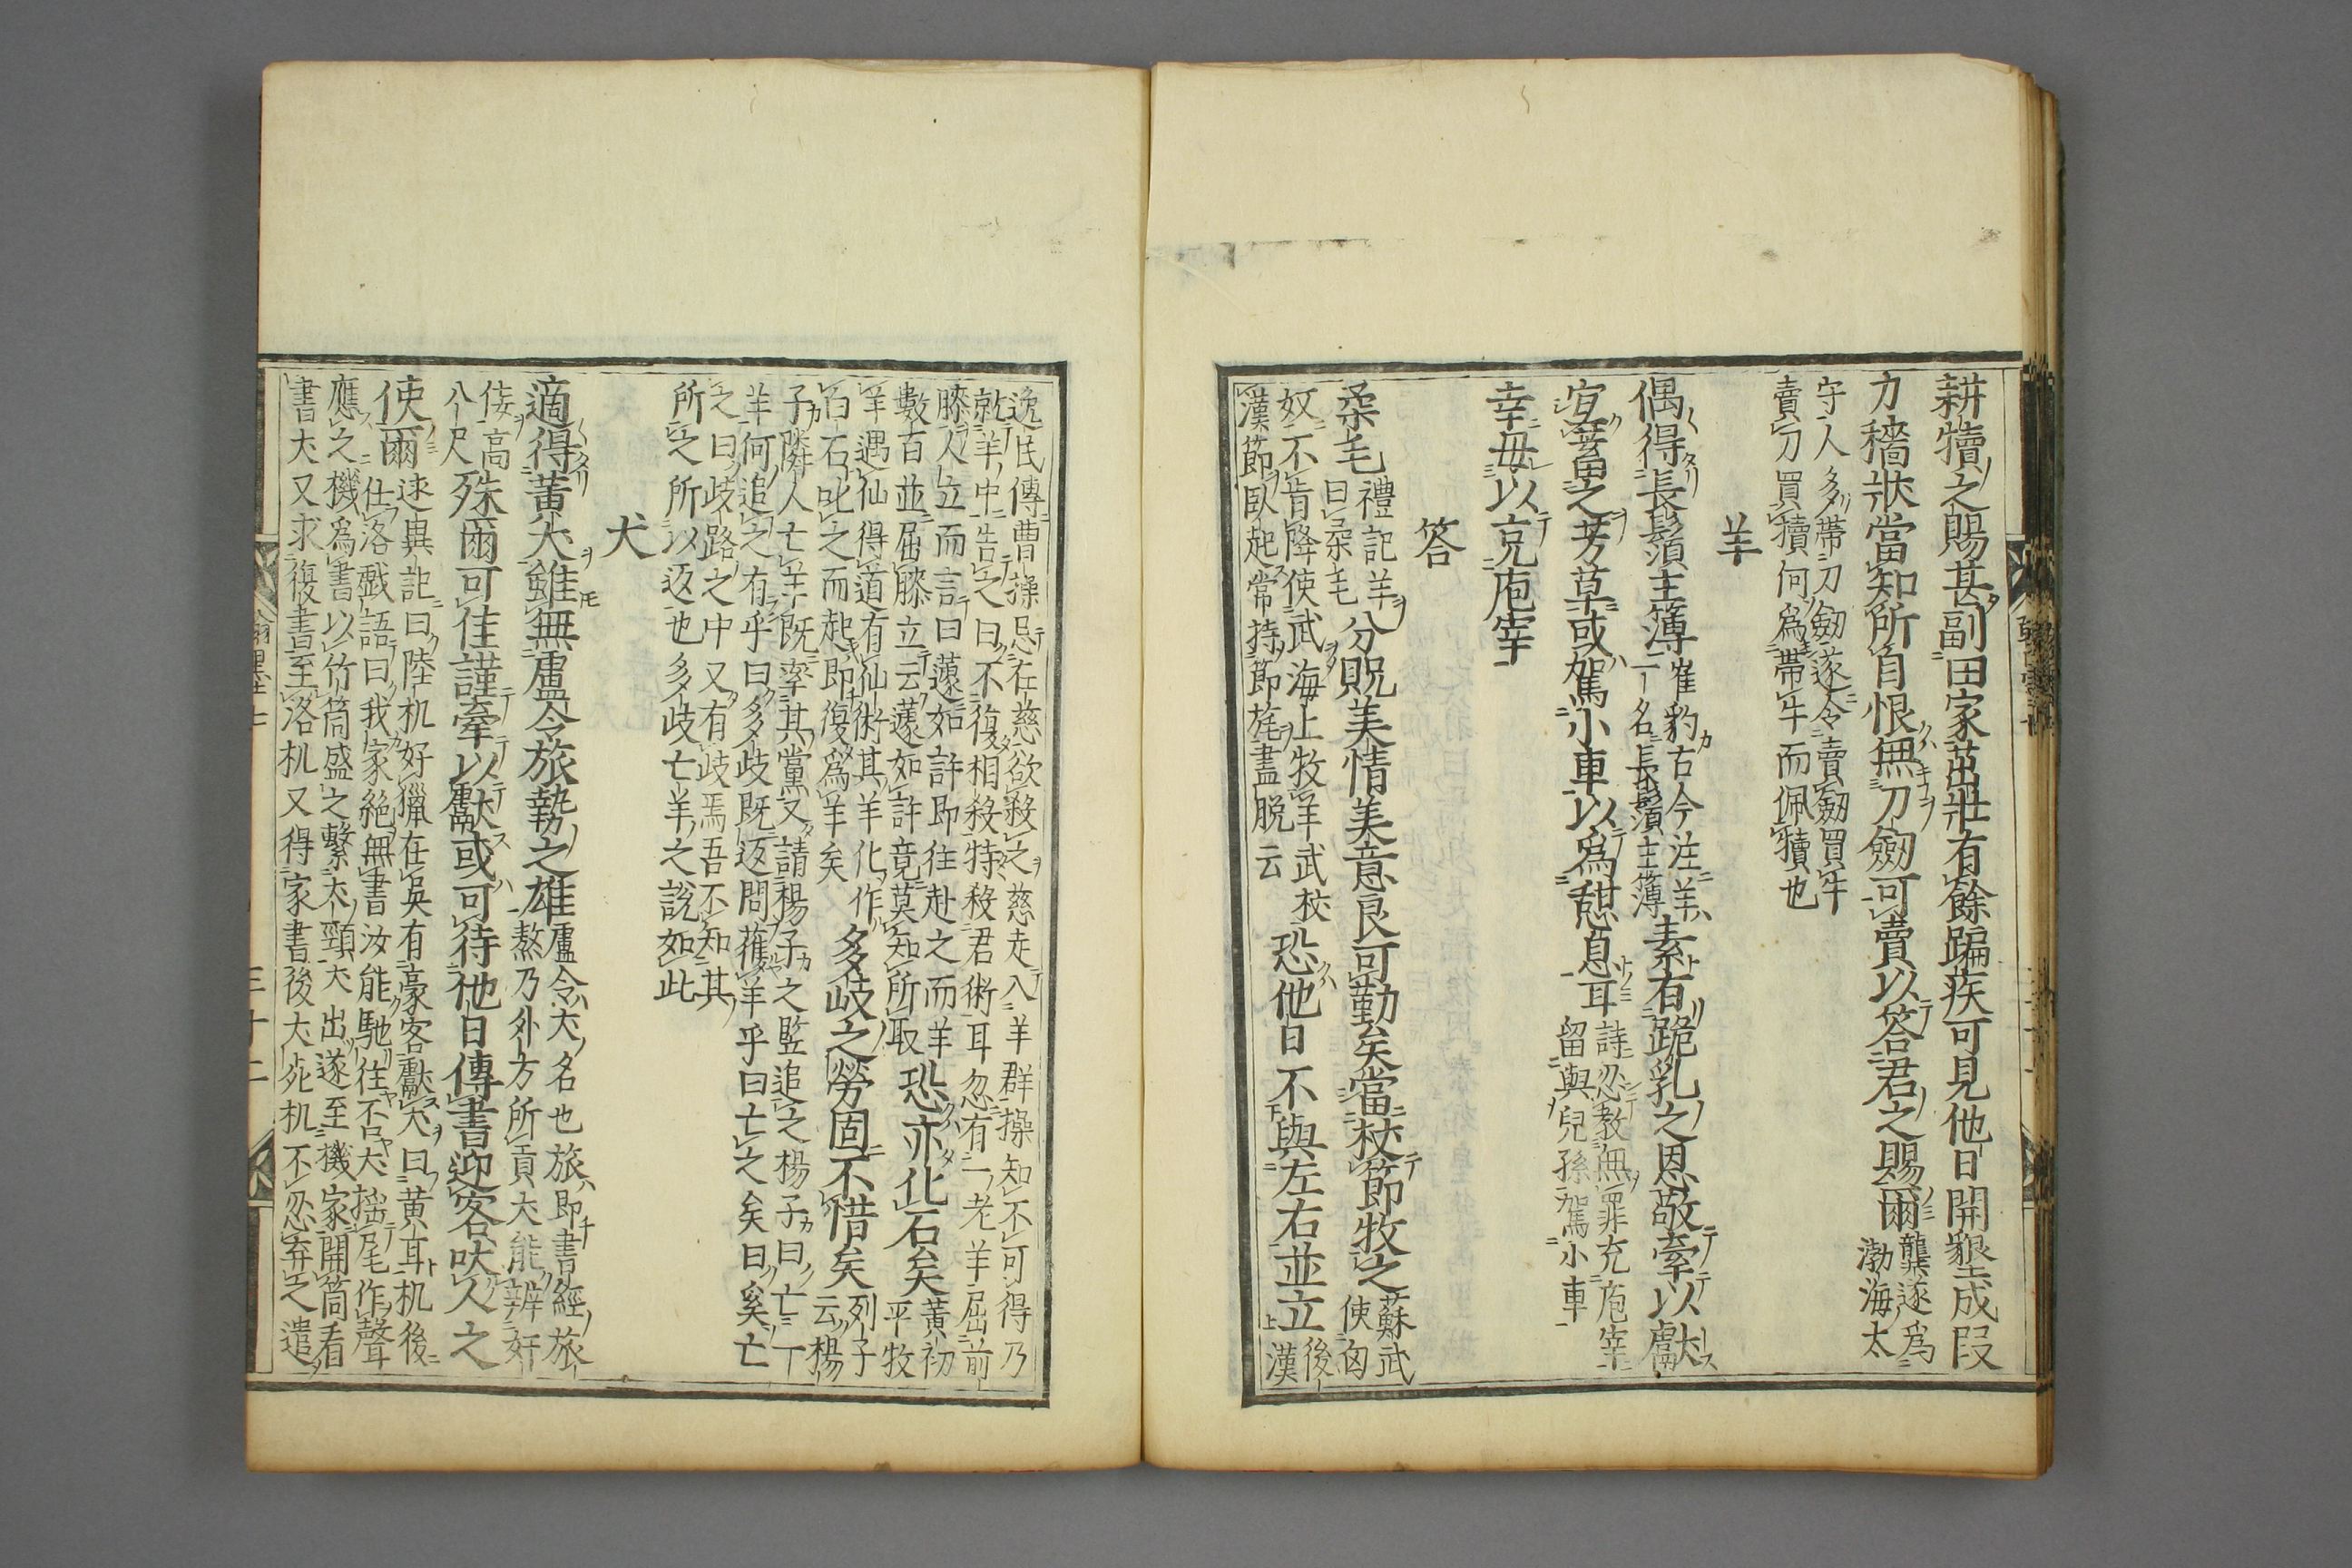 耕犢之賜甚副田家茁壯有餘蹁疾可見他日開墾成段
力穡狀當知所自恨無刀劒可賣以答君之賜爾龔遂爲渤海太
守人多帶刀劒遂令賣劒買牛
賣刀買犢何爲帶牛而佩犢也
羊
偶得長鬚主簿崔豹古今注羊一名長鬚主簿素有跪乳之恩敬牽以獻
宜蓄之芳草或駕小車以爲憩息耳詩忍教無罪充庖宰留與兒孫駕小車
幸毋以充庖宰
答
柔毛禮記羊曰柔毛分貺美情美意良可勤矣當校節牧之蘇武使匈
奴不肯降使武海上牧羊武校
漢節臥起常持節旄盡脱云
恐他日不與左右並立後漢
逸民傳曹操忌在慈欲殺之慈走入羊群操知不可得乃
就羊中告之曰不復相殺特殺君術耳忽有一老羊屈前
膝人立而言曰蘧如許即往赴之而羊
數百並屈膝立云蘧如許竟莫知所取
恐亦化石矣黃初平牧
羊遇仙得道有仙術其羊化作
白石叱之而起即復爲羊矣
多歧之勞固不惜矣列子云楊
子隣人亡羊既率其黨又請楊子之監追之楊子曰亡一
羊何追之有乎曰多歧既返問獲羊乎曰亡之矣曰奚亡
之曰歧路之中又有歧焉吾不知其
所之所以返也多歧亡羊之說如此
犬
適得黃犬雖無盧令旅執之雄盧令犬名也旅即書經旅獒乃外方所貢犬能辨奸
佞高八尺殊爾可佳謹牽以獻或可待他日傳書迎客吠人之
使爾述異記曰陸机好獵在吳有豪客獻犬曰黃耳机後
仕洛戲語曰我家絶無書汝能馳往否犬搖尾作聲
應之機爲書以竹筒盛之繫犬頸犬出遂至機家開筒看
書犬又求復書至洛机又得家書後犬死机不忍弃之遣
三十二